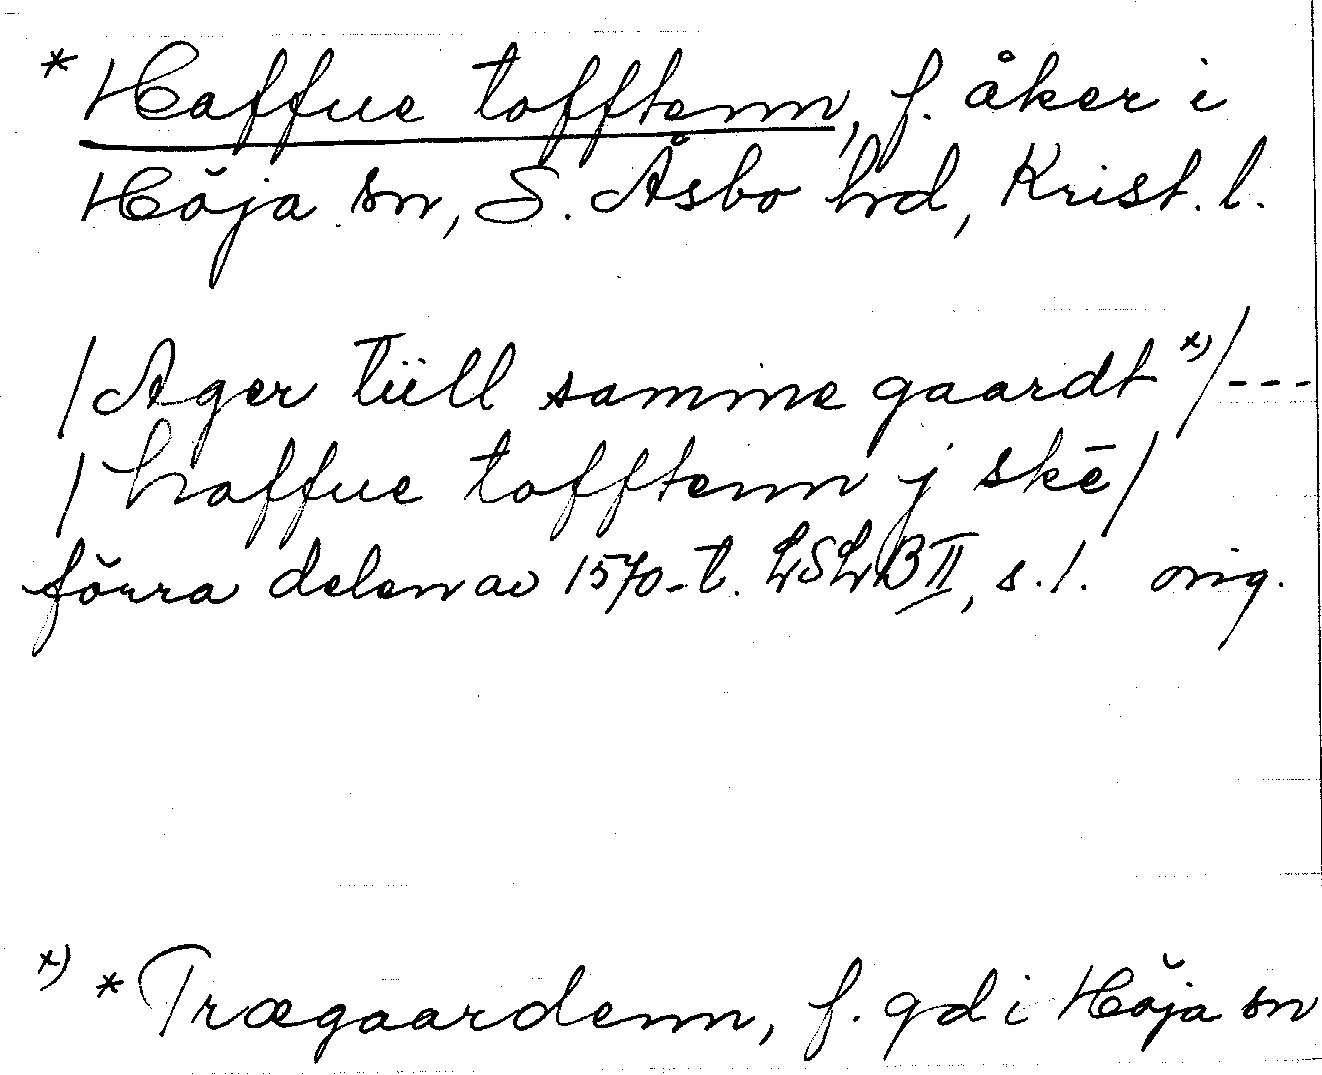 * Haffue tofftenn, f. åker i
Höja sn, S. Åsbo hd, Krist. l.
/Ager tiill samme gaardt x)/---
/haffue tofftenn j skē/
förra delen av 1570-t. LSLB II, s. 1. orig.
x) * Trægaardenn, f. gd i Höja sn